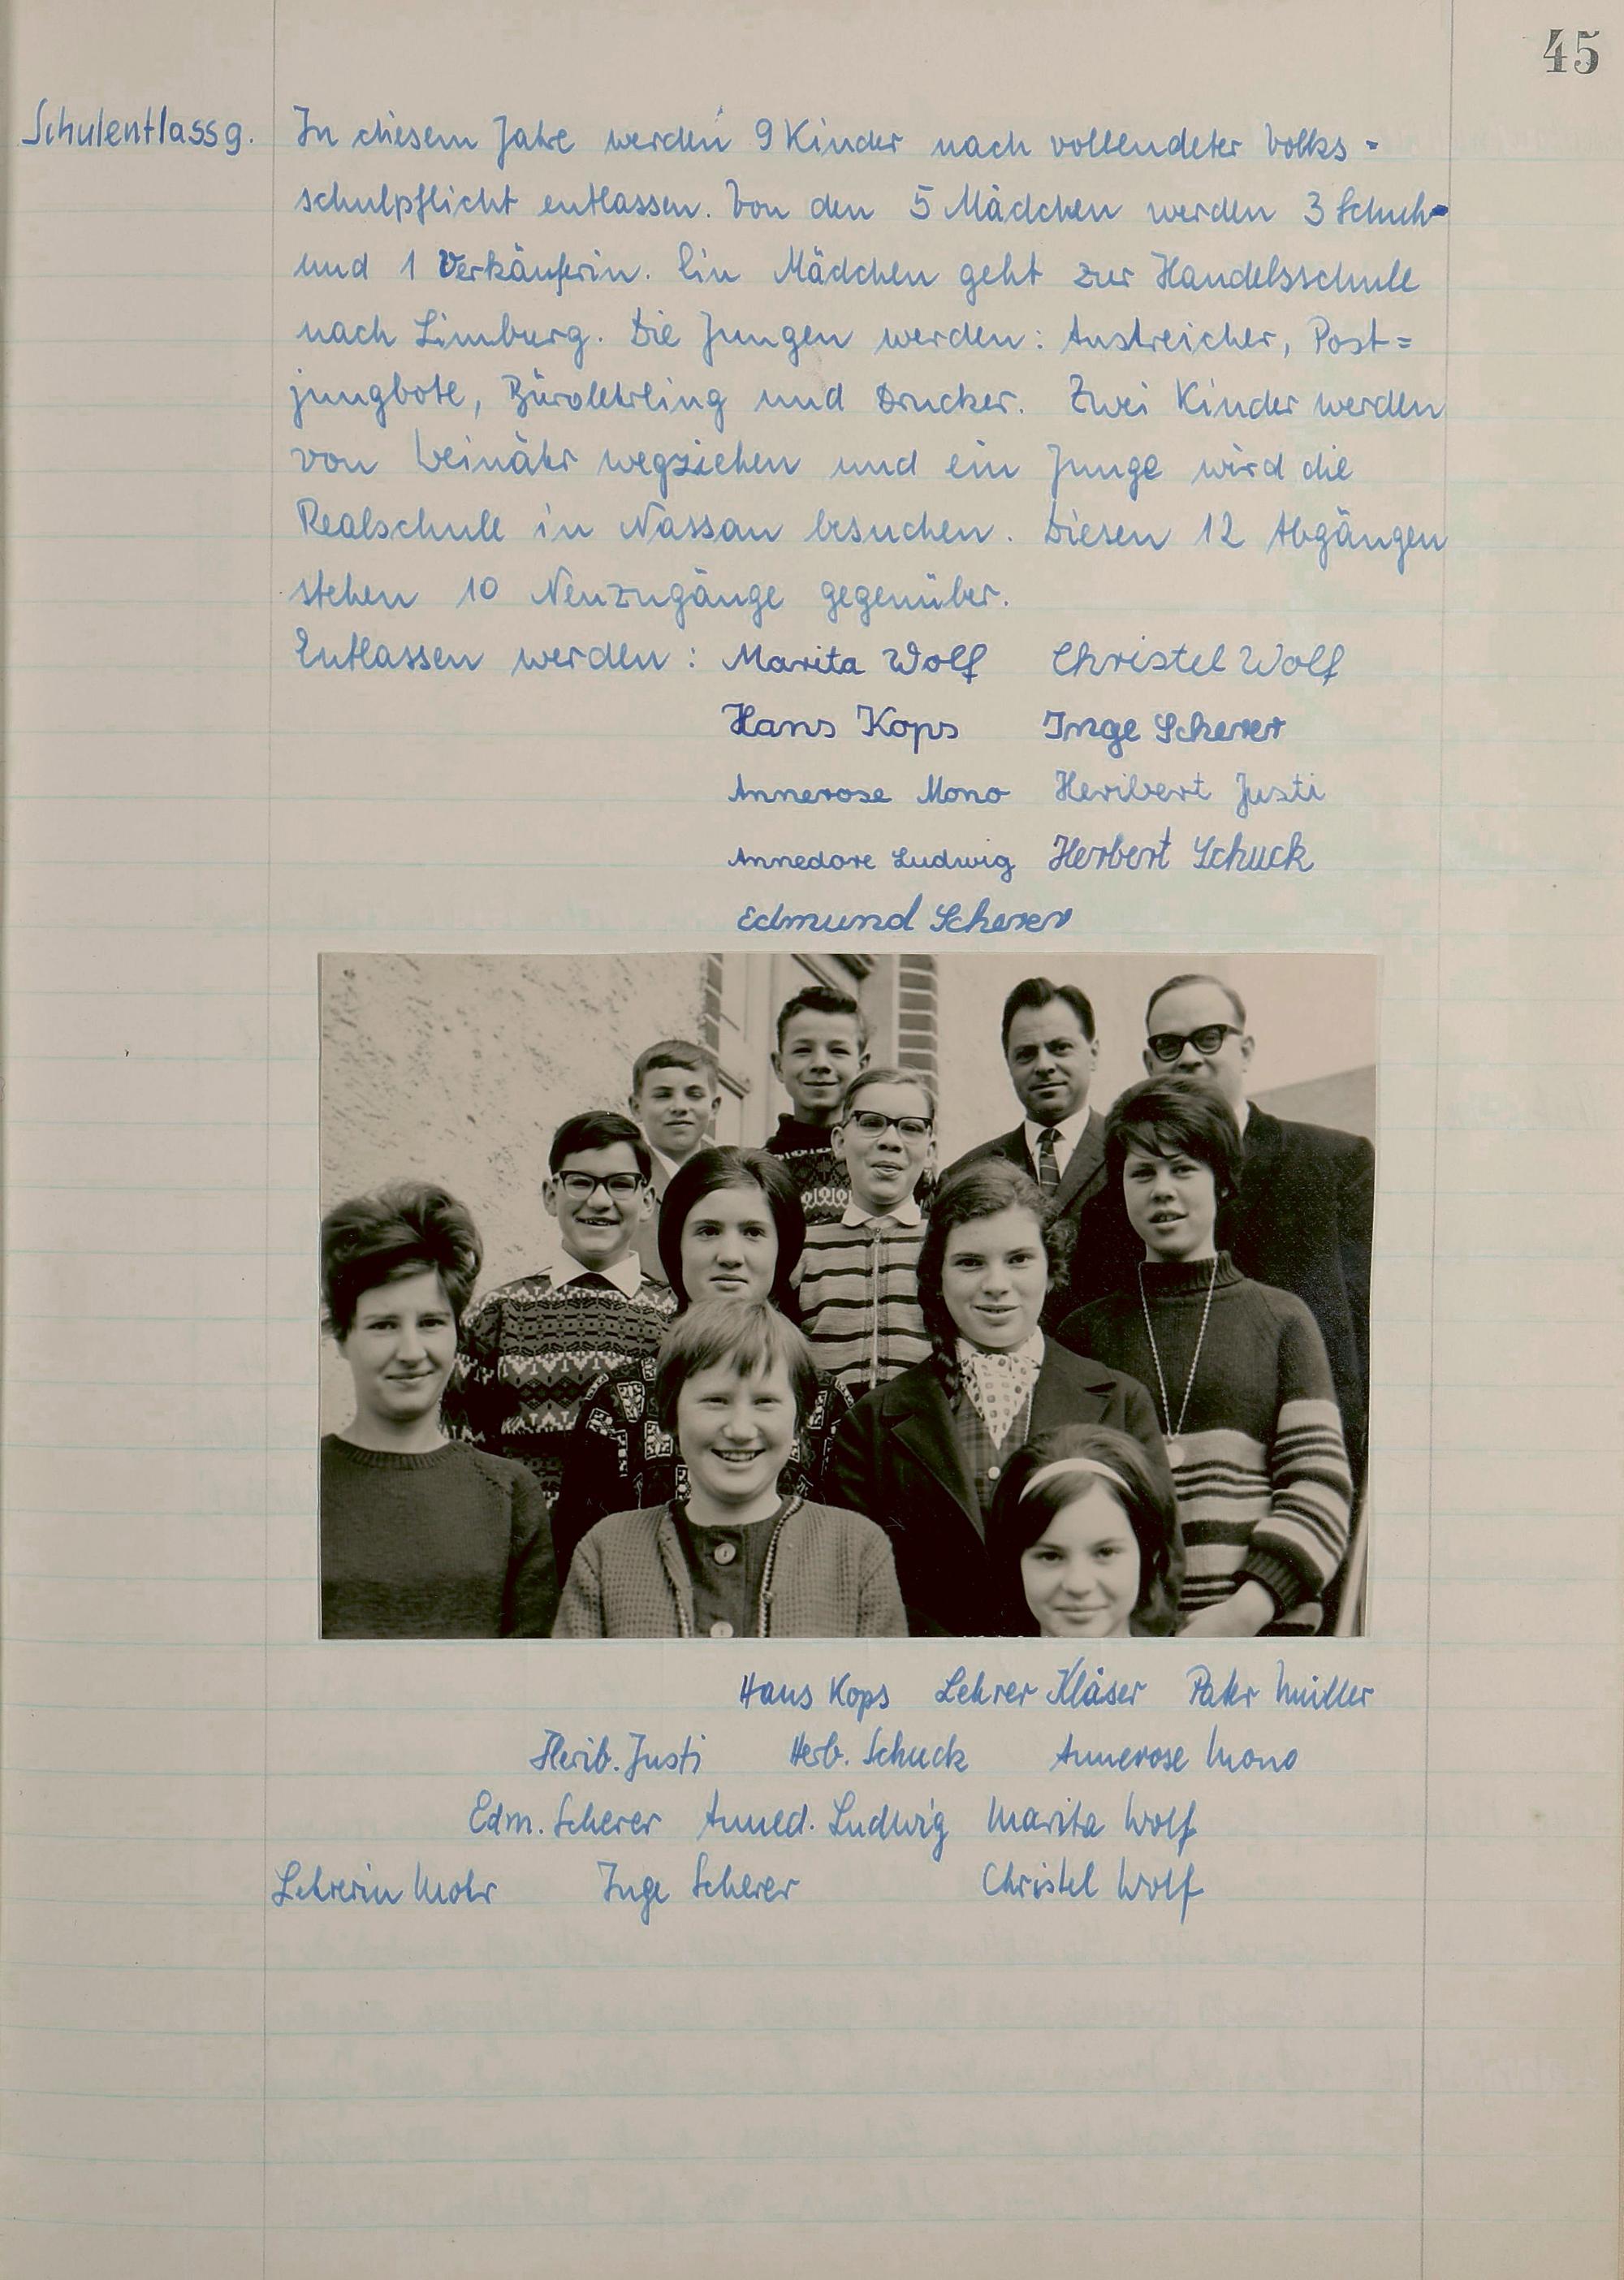 45
Schulentlassg.
In diesem Jahre werden 9 Kinder nach vollendeter Volks=
schulpflicht entlassen. Von den 5 Mädchen werden 3 Schuh-
und 1 Verkäuferin. Ein Mädchen geht zur Handelsschule
nach Limburg. Die Jungen werden: Anstreicher, Post=
jungbote, Bürolehrling und Drucker. Zwei Kinder werden
von Weinähr wegziehen und ein Junge wird die
Realschule in Nassau besuchen. Diesen 12 Abgängen
stehen 10 Neuzugänge gegenüber.
Entlassen werden: Marita Wolf Christel Wolf
Hans Kops Inge Scherer
Annerose Mono Heribert Justi
Annedore Ludwig Herbert Schuck
Edmund Scherer
Hans Kops Lehrer Kläser Pater Müller
Herib. Justi Herb. Schuck Annerose Mono
Edm. Scherer Anned. Ludwig Marita Wolf
Lehrerin Mohr Inge Scherer Christel Wolf